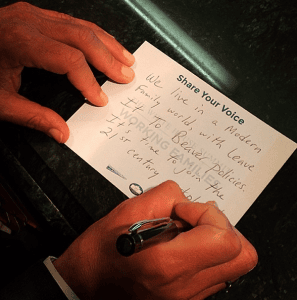 Share Your Voice
We live in a Modern
Family world, with Leave
It To Beaver Policies.
It's time to join the
21st
century
WORKING FAMILIES